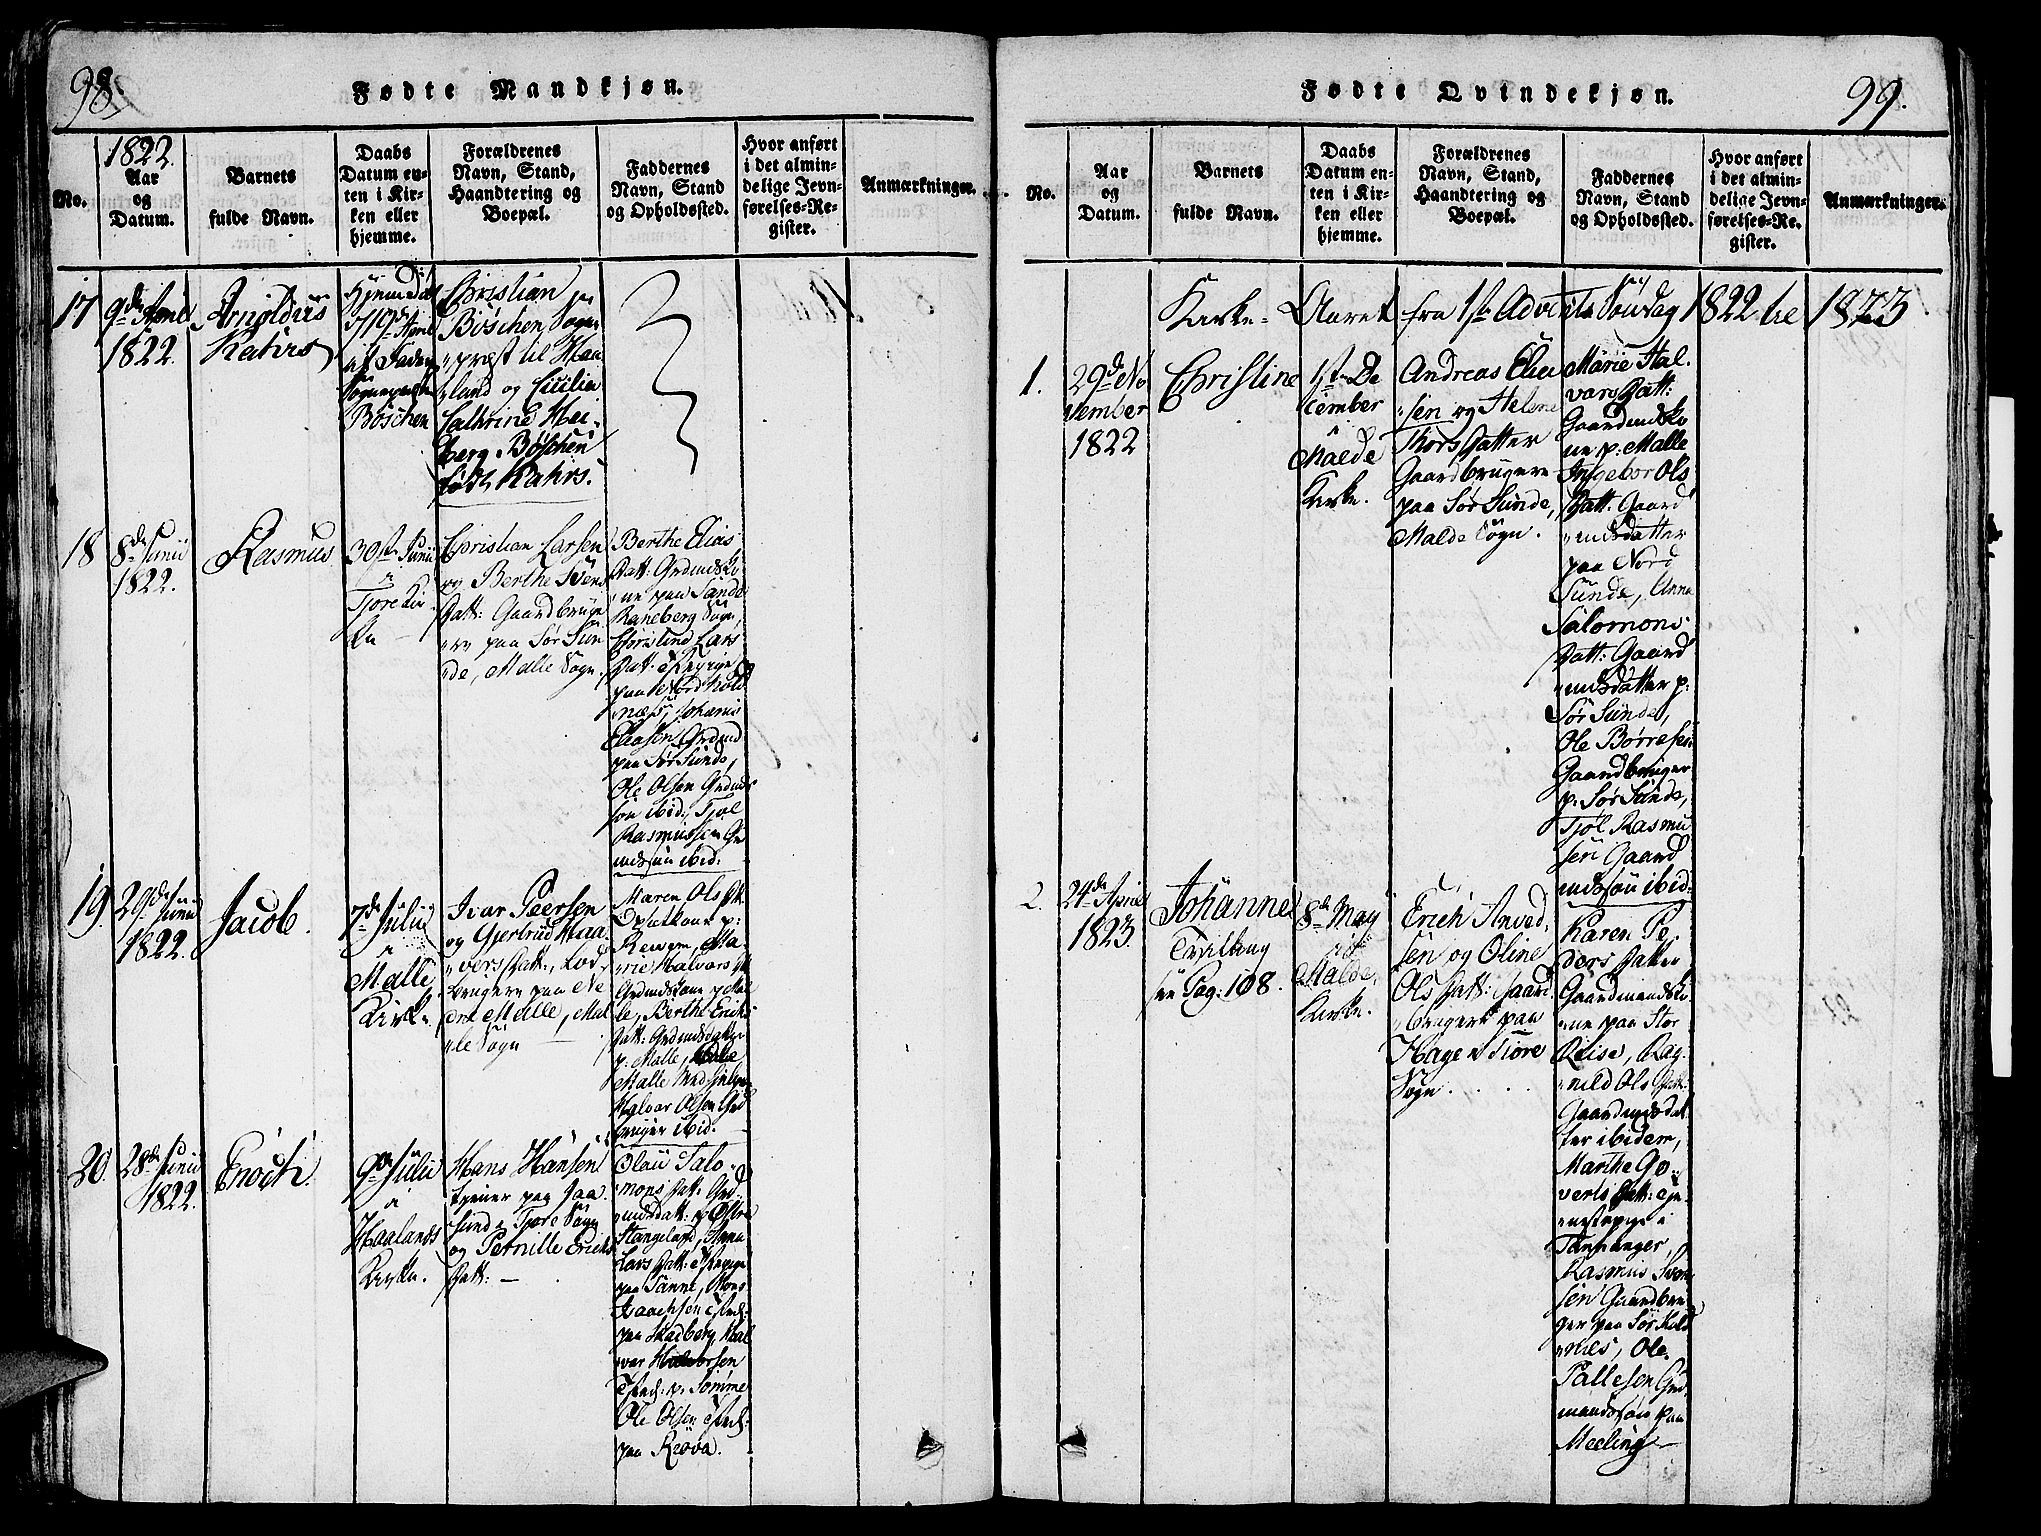 98.
Fødte Mandkjøn.
No.
1822.
Aar
og
Datum.
Barnets
fulde Navn.
Daabs
Datum en-
ten i Kir-
ken eller
hjemme.
Forældrenes
Navn, Stand,
Haandtering og
Boepæl.
Faddernes
Navn, Stand
og Opholdssted.
Hvor anført
i det almin-
delige Jevn-
førelses-Re-
gister.
Anmærkninger.
17
9de April
1822.
Arnoldus
Kahrs
Hjemmedøbt
af Faderen
Sognepræsten
Bøschen
Christian
Bøschen Sogne
præst til Haa
land og Cicilia
Cathrine Hei-
berg Bøschen
født Kahrs.
18
8de Junii
1822.
Rasmus
30te Junii
i
Tjore Kir
ke
Christian Larsen
og Berthe Svens
Datt: Gaardbruge
re paa Sør Sun
de, Malle Sogn.
Berthe Elias
Datt: Grdmdsko
ne paa Sande
Raneberg Sogn,
Christine Lars
Datt: Tjpige
paa Nord Kold
næss, Johanis
Eliasen Grdmd
paa Sør Sunde,
Ole Olsen Grdmds
søn ibid, Tjøl
Rasmussen Gr
mdssøn ibid.
19
29de Junii
1822.
Jacob.
7de Julii
i
Malle
Kirke
Ivar Peersen
og Gjertrud Haa
vers Datt:, Lod
brugere paa Ne
dre Malle, Mal
le Sogn
Maren Ols Dt
p:
Ma
rie Halvors Dt
Grdmdskone p Mal
le, Berthe Erichs
Datt: Grdmdsdatter
p. Malle,
Malle
Halvor Olsen Grd
bruger ibid.
20.
28de Junii
1822.
Enoch.
9de Julii
i
Haalands
Kirke.
Hans Hansen
tjener paa Jaa
sund i Tjore Sogn
og Pernille Erichs
Datt: —
Olau Salo
mons Datt: Grd
mdsdatt: p Østre
Stangeland, Anna
Lars Datt: Tjpige
paa Tanne, Mons
Isaachsen Tjenk.
paa Skadberg, Hal
var Halvorsen
Tjenk: p. Sømme
Ole Olsen Tjenk:
paa Ræva.
99.
Fødte Qvindekjøn.
No.
Aar
og
Datum.
Barnets
fulde Navn.
Daabs
Datum en-
ten i Kir-
ken eller
hjemme.
Forældrenes
Navn, Stand,
Haandtering og
Boepæl.
Faddernes
Navn, Stand
og Opholdssted.
Hvor anført
i det almin-
delige Jevn-
førelses-Re-
gister.
Anmærkninger.
Kirke-Aaret fra 1ste Advents Søndag 1822 til 1823
1.
29de No
vember
1822
Christine
1ste De
cember
i
Malde
Kirke.
Andreas Elia
sen og Helene
Thors Datter
Gaardbrugere
paa Sør Sunde,
Malde Sogn.
Marie Hal
vars Datt:
Gaardmdsko
ne p: Malle
Ingebor Ols
Datt: Gaard
mdsdatter
paa Nord
Sunde, Anna
Salomons
Datt: Gaard
mdsdatter p:
Sør Sunde,
Ole Børresen
Gaardbruger
p. Sør Sunde,
Tjøl Rasmu
sen Gaard
mdssøn ibid:
2.
24de April
1823.
Johanne
Tvilling
see Pag: 108.
8de May
i
Malde
Kirke.
Erich Anved
sen og Oline
Ols Datt: Gaard
brugere paa
Hage i Tjore
Sogn.
Karen Pe
ders Datter
Gaardmandsko
ne paa Stor
Reise, Rag
nild Ols Datt:
Gaardmdsdat
ter ibidem,
Marthe Go
verts Datt: Tje
nestepige i
Tannanger,
Rasmus Sven
sen Gaardbru
ger paa Sør Kold
næs, Ole
Pallesen Grd
mandssøn paa
Meeling